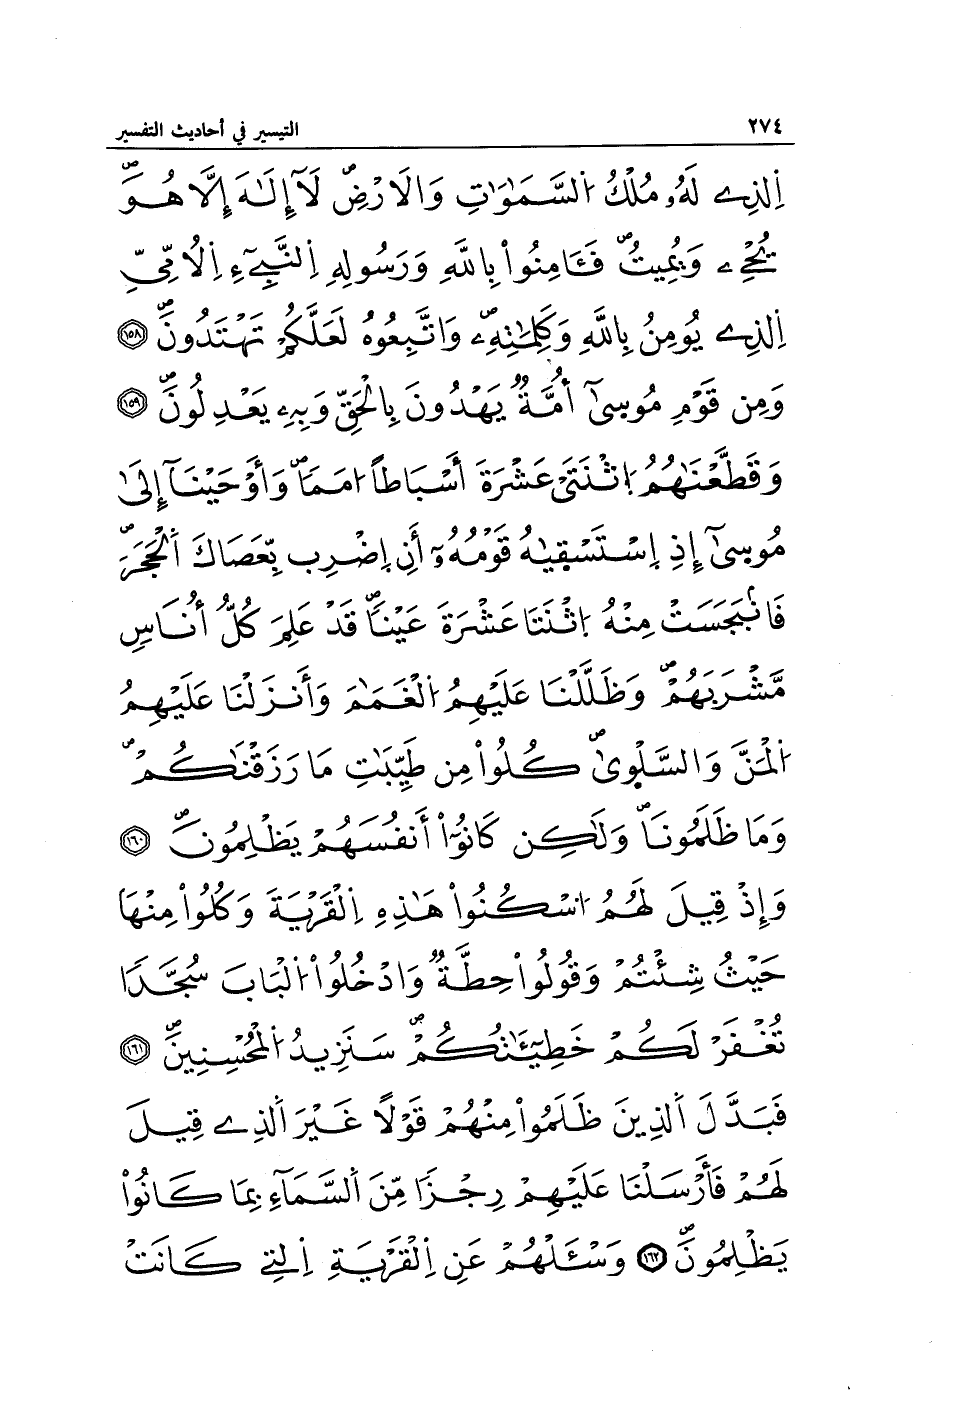 ٢٧٤ التيسير في أحاديث التفسير
اِ۬لذِے لَهُۥ مُلْكُ اُ۬لسَّمَٰوَٰتِ وَالَارْضِۖ لَآ إِلَٰهَ إِلَّا هُوَۖ
يُحْيِۦ وَيُمِيتُۖ فَـَٔامِنُواْ بِاللَّهِ وَرَسُولِهِ اِ۬لنَّبِےٓءِ اِ۬لُامِّيِّ
اِ۬لذِے يُومِنُ بِاللَّهِ وَكَلِمَٰتِهِۦۖ وَاتَّبِعُوهُ لَعَلَّكُمْ تَهْتَدُونَۖ ١٥٨
وَمِن قَوْمِ مُوسَىٰٓ أُمَّةٌ يَهْدُونَ بِالْحَقِّ وَبِهِۦ يَعْدِلُونَۖ ١٥٩
وَقَطَّعْنَٰهُمُ اُ۪ثْنَتَےْ عَشْرَةَ أَسْبَاطاً اُمَماًۖ وَأَوْحَيْنَآ إِلَىٰ
مُوسَىٰٓ إِذِ اِ۪سْتَسْقِيٰهُ قَوْمُهُۥٓ أَنِ اِ۪ضْرِب بِّعَصَاكَ اَ۬لْحَجَرَۖ
فَانۢبَجَسَتْ مِنْهُ اُ۪ثْنَتَا عَشْرَةَ عَيْناًۖ قَدْ عَلِمَ كُلُّ أُنَاسٖ
مَّشْرَبَهُمْۖ وَظَلَّلْنَا عَلَيْهِمُ اُ۬لْغَمَٰمَ وَأَنزَلْنَا عَلَيْهِمُ
اُ۬لْمَنَّ وَالسَّلْوِىٰۖ كُلُواْ مِن طَيِّبَٰتِ مَا رَزَقْنَٰكُمْۖ
وَمَا ظَلَمُونَاۖ وَلَٰكِن كَانُوٓاْ أَنفُسَهُمْ يَظْلِمُونَۖ ١٦٠
وَإِذْ قِيلَ لَهُمُ اُ۟سْكُنُواْ هَٰذِهِ اِ۬لْقَرْيَةَ وَكُلُواْ مِنْهَا
حَيْثُ شِئْتُمْ وَقُولُواْ حِطَّةٌ وَادْخُلُواْ اُ۬لْبَابَ سُجَّداً
تُغْفَرْ لَكُمْ خَطِيٓـَٰٔتُكُمْۖ سَنَزِيدُ اُ۬لْمُحْسِنِينَۖ ١٦١
فَبَدَّلَ اَ۬لذِينَ ظَلَمُواْ مِنْهُمْ قَوْلاً غَيْرَ اَ۬لذِے قِيلَ
لَهُمْ فَأَرْسَلْنَا عَلَيْهِمْ رِجْزاً مِّنَ اَ۬لسَّمَآءِ بِمَا كَانُواْ
يَظْلِمُونَۖ ١٦٢ وَسْـَٔلْهُمْ عَنِ اِ۬لْقَرْيَةِ اِ۬لتِے كَانَتْ